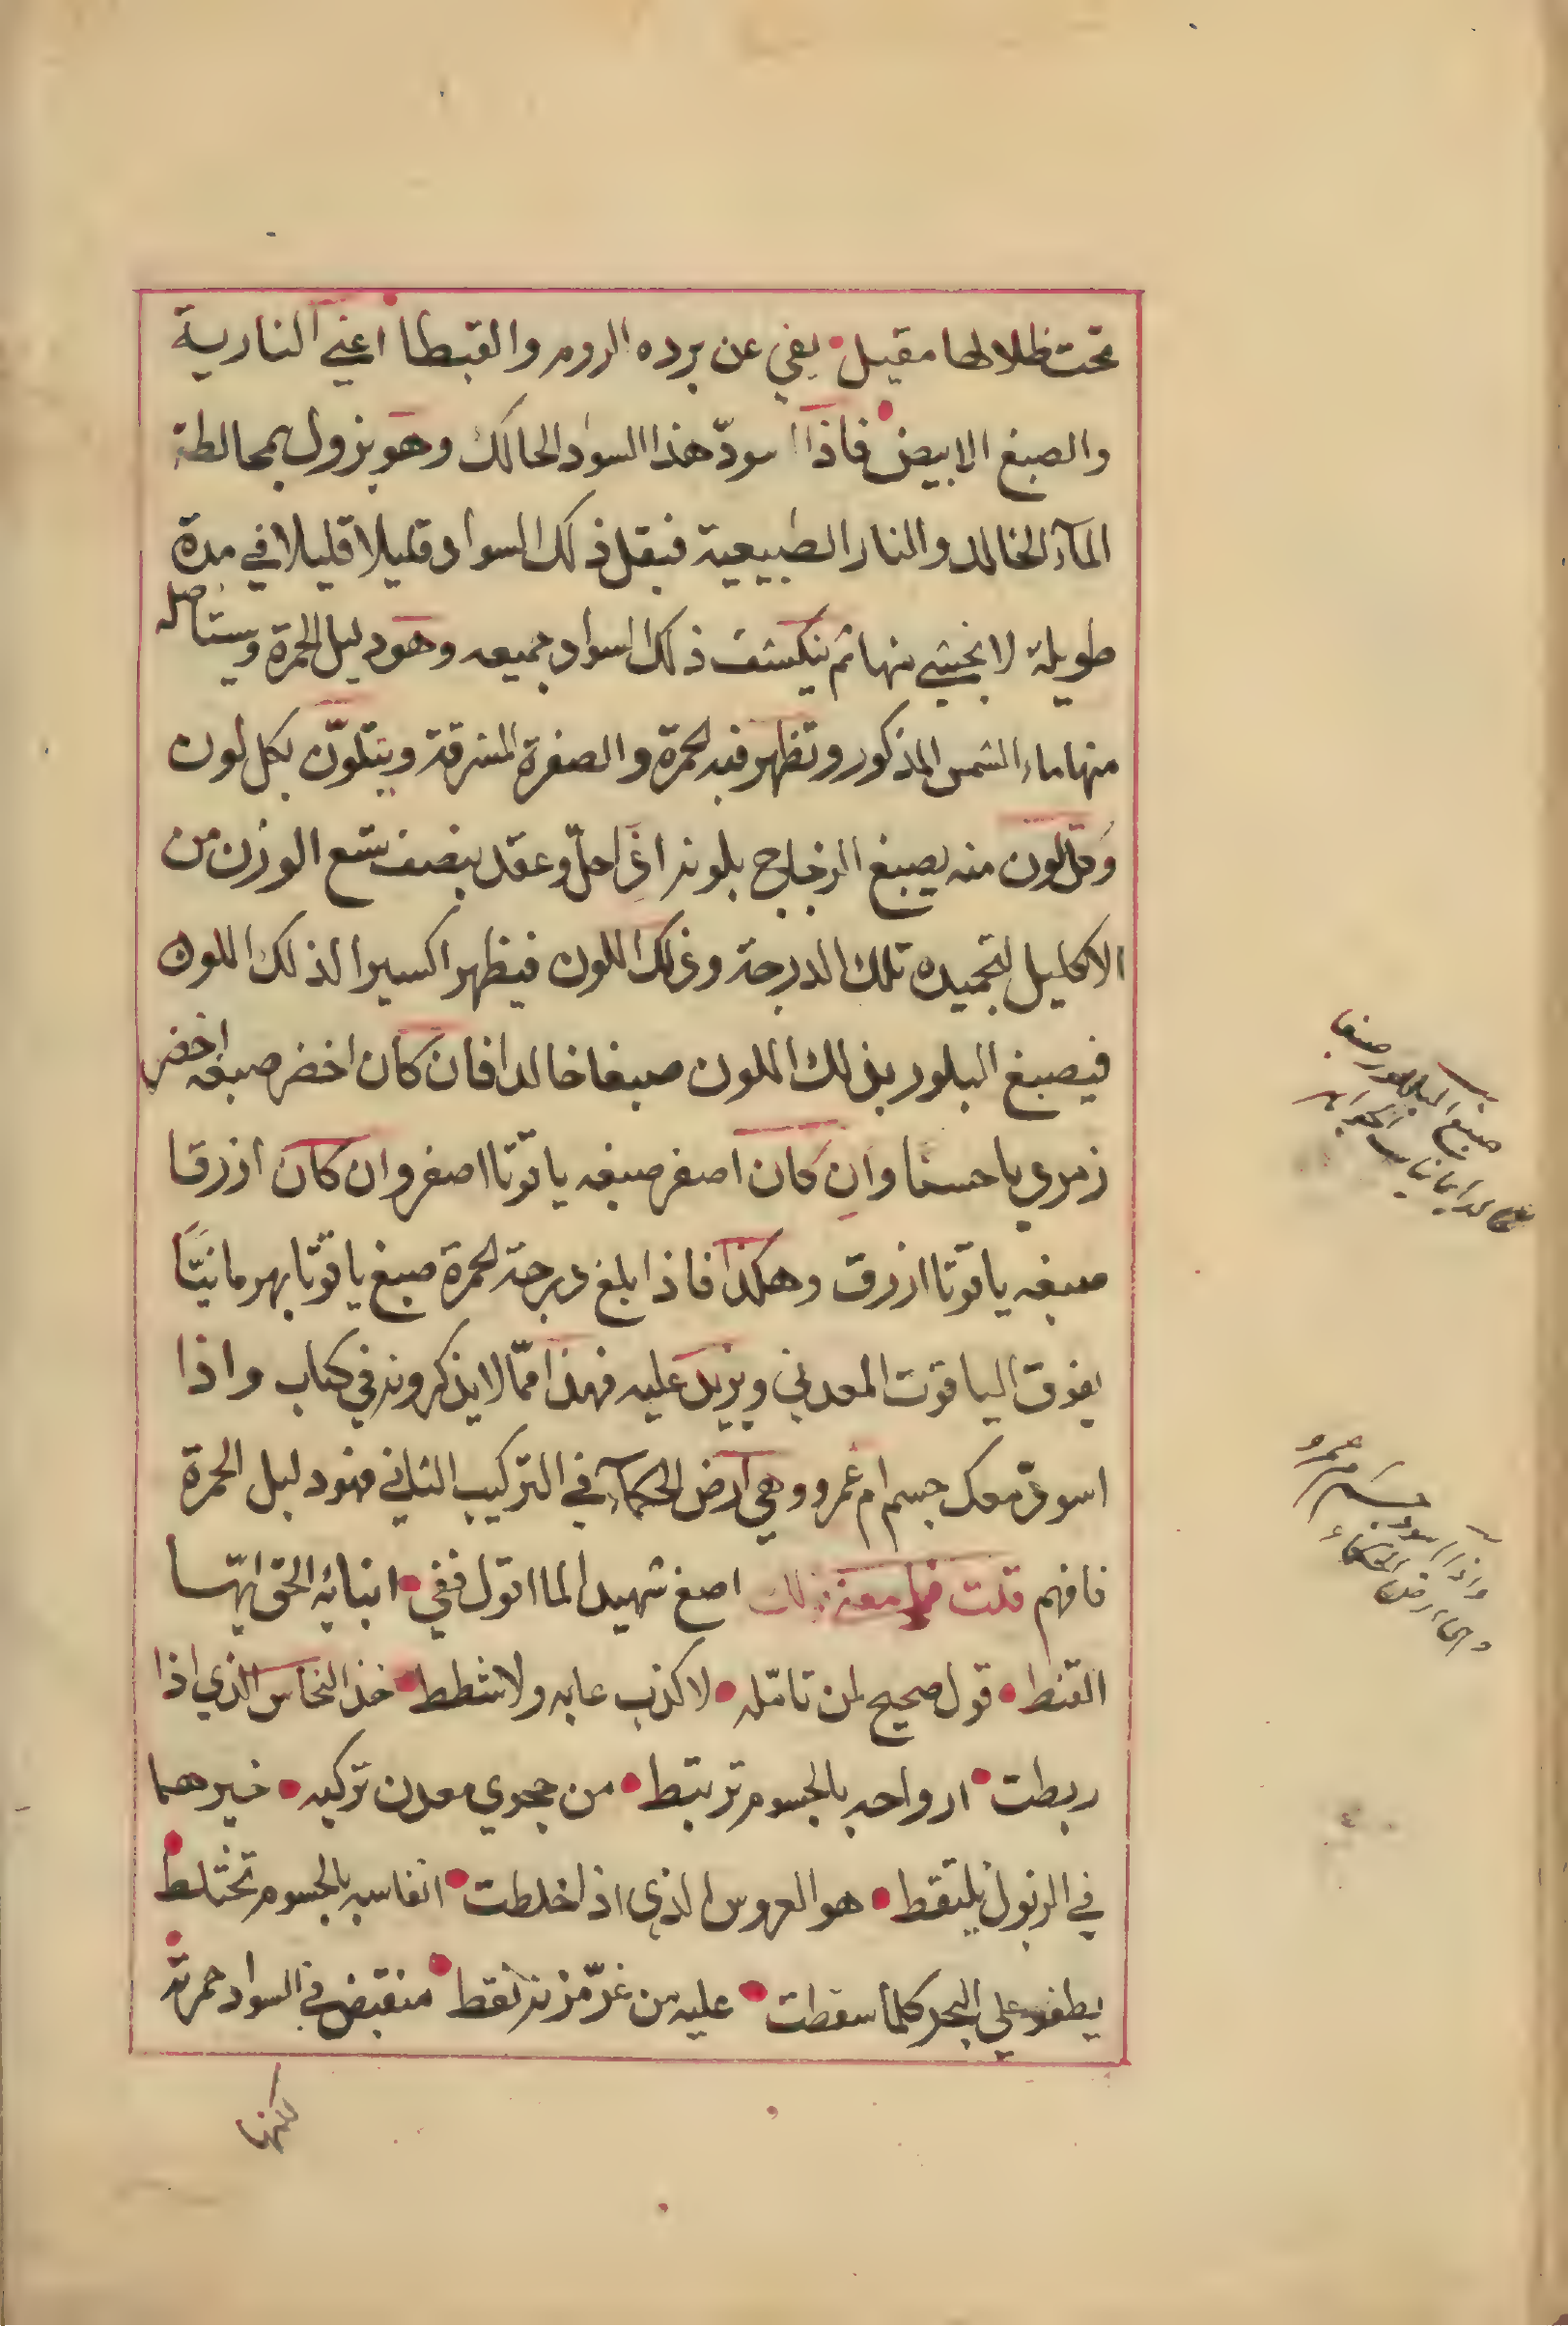 تحت ظلالها مقيل • يغني عن برده الروم والقبطا اعني النارية
والصبغ الابيض فاذا اسودّ هذا السواد الحالك وهو يزول بمخالطة
المآء الخالد والنار الطبيعية فيقل ذلك السواد قليلا قليلا في مدة
طويلة لا يخشي منها ثم ينكشف ذلك السواد جميعه وهو دليل الحمرة ويستاصله
منها ماء الشمس المذكور وتظهر فيه الحمرة والصفرة المشرقة ويتلوّن بكل لون
وكل لون منه يصبغ الزجاج بلونه اذا حلّ وعقد بنصف تسع الوزن من
الاكليل لتجميده تلك الدرجة وذلك اللون فيظهر اكسيرا لذلك اللون
فيصبغ البلور بذلك اللون صبغا خالدا فان كان اخضر صبغه اخضر
زمرديا حسنا وان كان اصفر صبغه ياقوتا اصفر وان كان ازرقا
صبغه ياقوتا ازرق وهكذا فاذا بلغ درجة الحمرة صبغ ياقوتا بهرمانيّا
يفوق الياقوت المعدني ويزيد عليه فهذا ممّا لا يذكرونه في كتاب واذا
اسودّ معك جسم ام عمرو وهي ارض الحكمآء في التركيب الثاني فهو دليل الحمرة
فافهم قلت ذلك اصغ شهيدا لما اقول ففي • انبائه الحق ايّها
القنط • قول صحيح لمن تامّله • لا كذب عابه ولا شطط • خذ النحاس الذي اذا
ربطت • ارواحه بالجسوم ترتبط • من حجري معدن تركبه • خيرهما
في الزبول يلتقط • هو العروس الذي اذا خلطت • انفاسه بالجسوم تختلط •
يطفو علي البحر كلما سقطت • عليه من غرّ مزنه نقط • منقبض في السواد حمرته •
لكنها
صبغ البلور صبغا
واذا اسود جسم ام عمرو
وهي ارض الحكماء